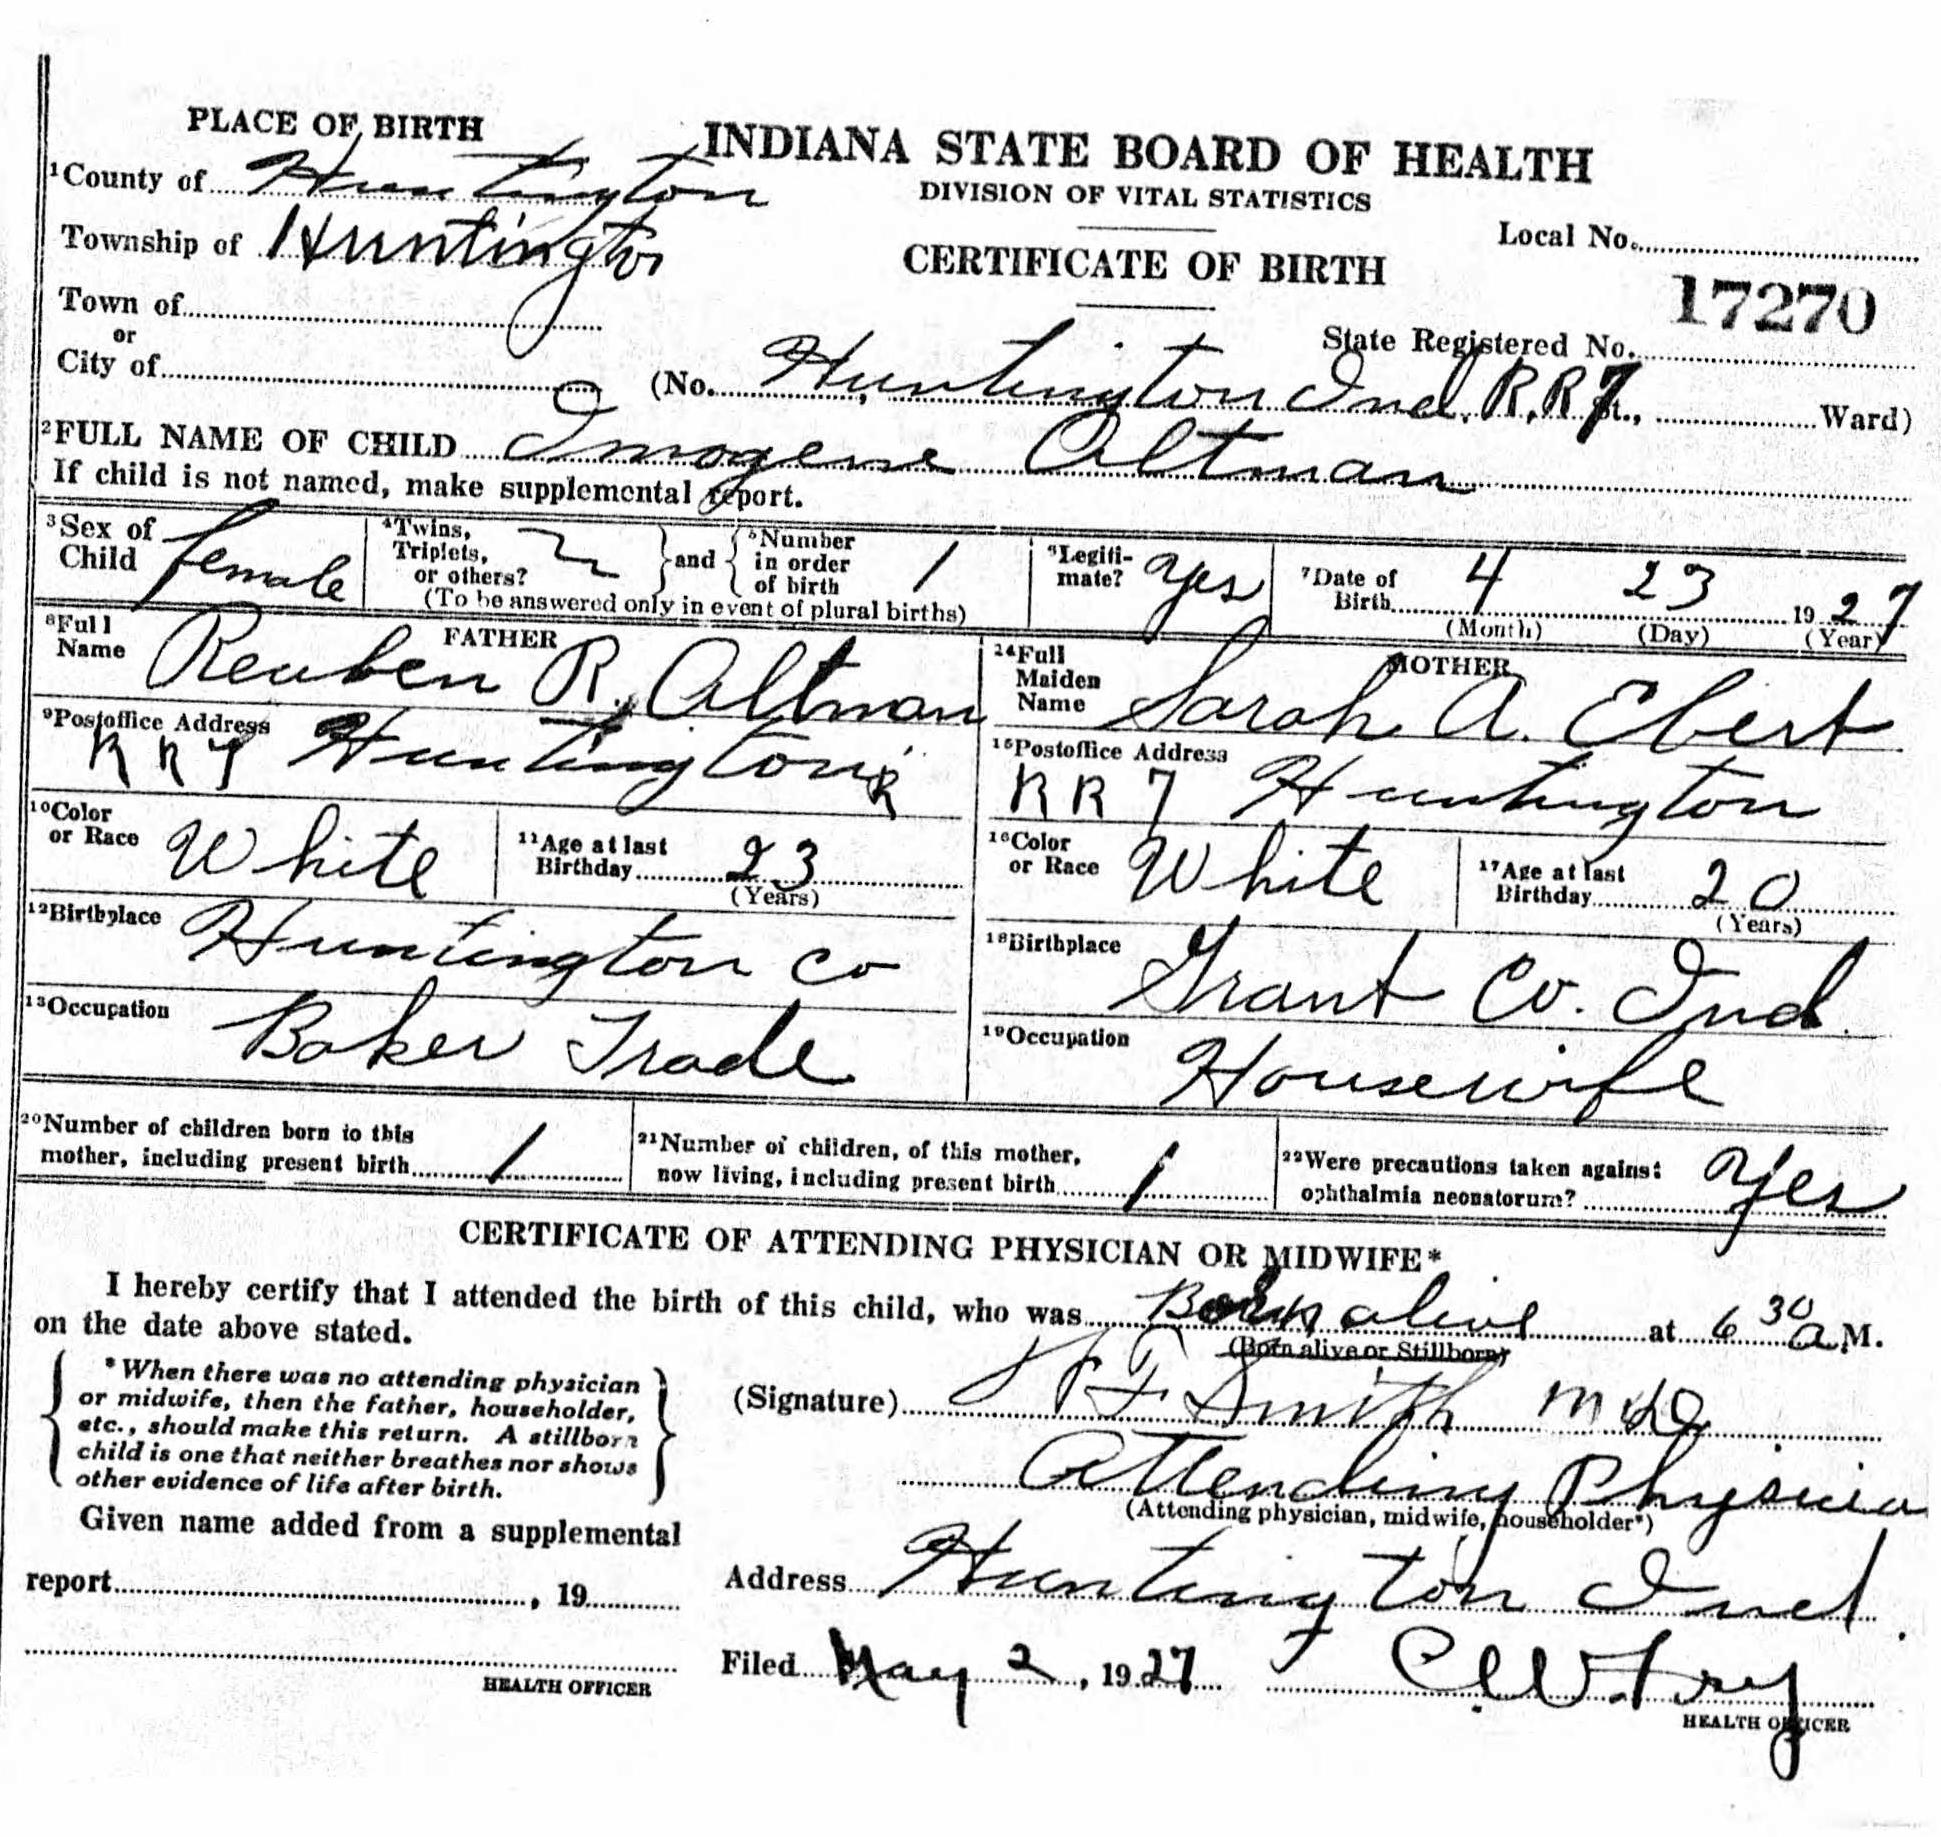 PLACE OF BIRTH
INDIANA STATE BOARD OF HEALTH
DIVISION OF VITAL STATISTICS
CERTIFICATE OF BIRTH
1 County of Huntington
Township of Huntington
Town of
or
City of
Local No.
17270
State Registered No.
(No. Huntington Ind. R.R 7 St., Ward)
2 FULL NAME OF CHILD Imogene Altman
If child is not named, make supplemental report.
3 Sex of Child female
4 Twins, Triplets, or others?
and
5 Number in order of birth 1
(To be answered only in event of plural births)
6 Legitimate? Yes
7 Date of Birth 4 23 1927
(Month) (Day) (Year)
FATHER
8 Full Name Reuben R. Altman
9 Postoffice Address
RR7 Huntington
10 Color or Race White
11 Age at last Birthday 23
(Years)
12 Birthplace Huntington Co
13 Occupation Baker Trade
MOTHER
14 Full Maiden Name Sarah A. Ebert
15 Postoffice Address
RR 7 Huntington
16 Color or Race White
17 Age at last Birthday 20
(Years)
18 Birthplace Grant Co. Ind.
19 Occupation Housewife
20 Number of children born to this mother, including present birth 1
21 Number of children, of this mother, now living, including present birth 1
22 Were precautions taken against ophthalmia neonatorum? Yes
CERTIFICATE OF ATTENDING PHYSICIAN OR MIDWIFE*
I hereby certify that I attended the birth of this child, who was Born alive at 6 30 a M.
on the date above stated.
(Born alive or Stillborn)
*When there was no attending physician
or midwife, then the father, householder,
etc., should make this return. A stillborn
child is one that neither breathes nor shows
other evidence of life after birth.
(Signature) Smith
Attending Physicia
(Attending physician, midwife, householder*)
Given name added from a supplemental
report , 19
HEALTH OFFICER
Address Huntington Ind.
Filed May 2, 1927 Fry
HEALTH OFFICER